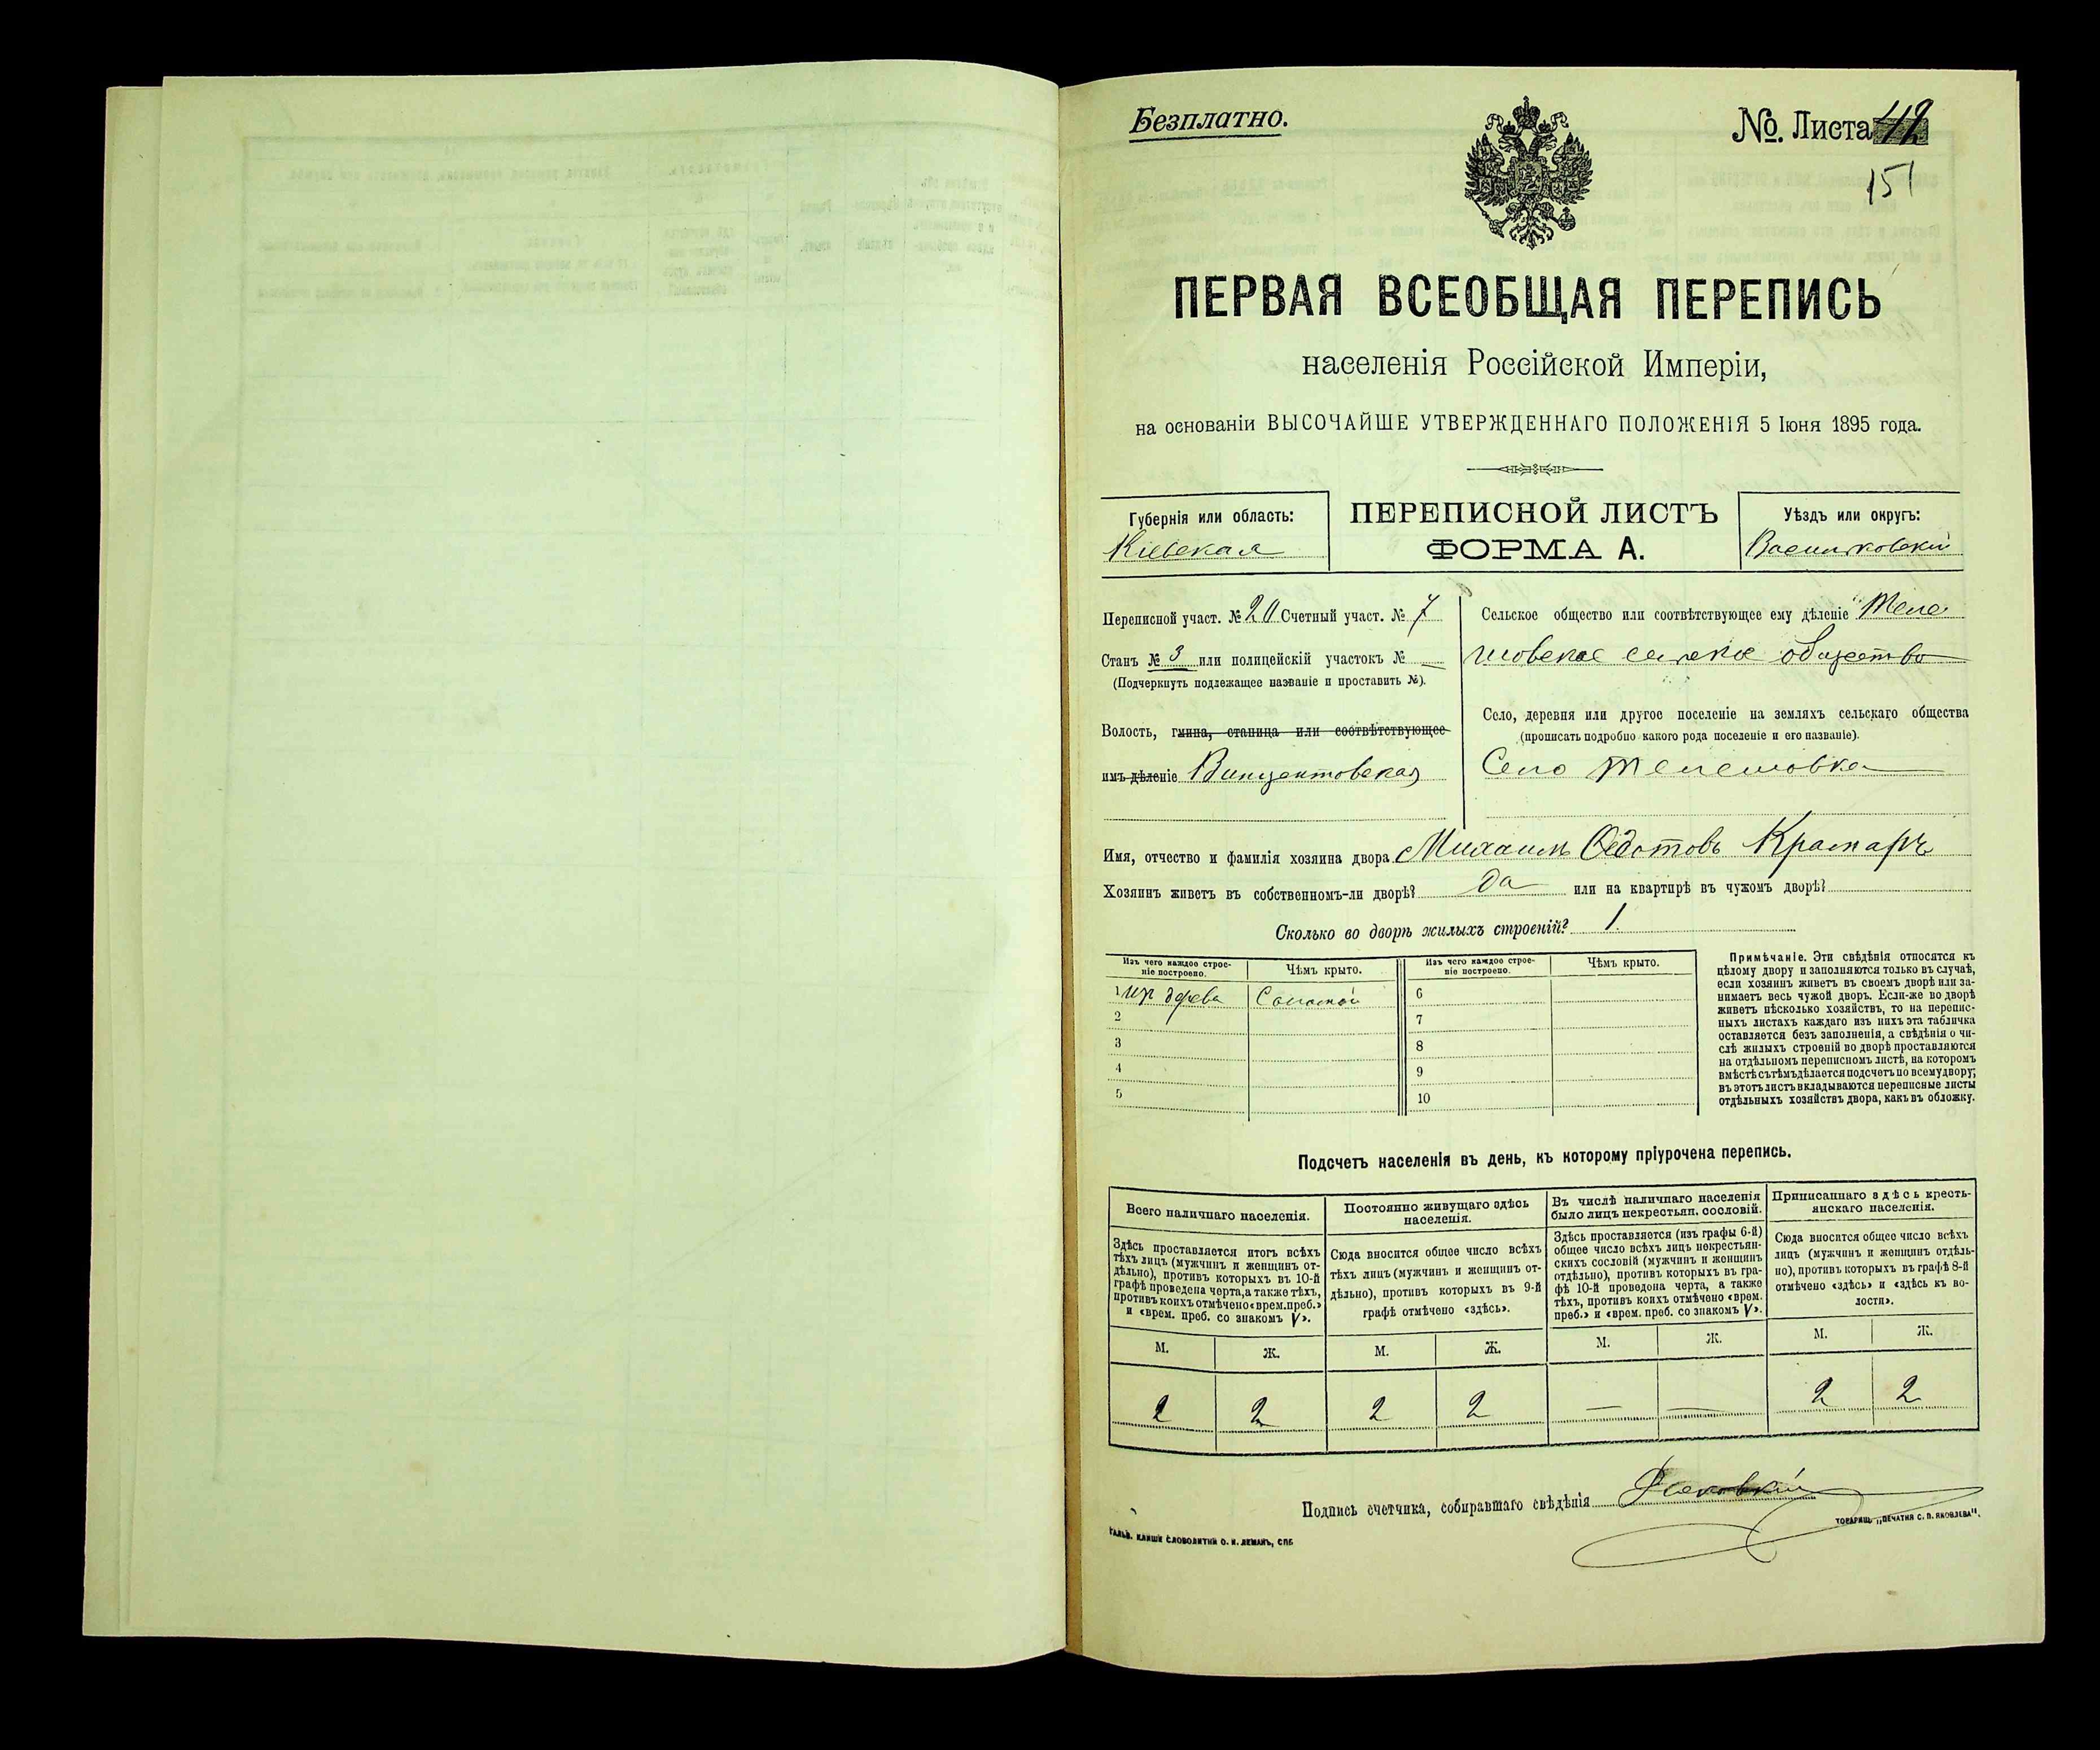 Безплатно.
№. Листа 42
151
ПЕРВАЯ ВСЕОБЩАЯ ПЕРЕПИСЬ
населенія Россійской Имперіи,
на основаніи ВЫСОЧАЙШЕ УТВЕРЖДЕННАГО ПОЛОЖЕНІЯ 5 Іюня 1895 года.
Губернія или область:
Кіевская
ПЕРЕПИСНОЙ ЛИСТЪ
ФОРМА А.
Уѣздъ или округъ:
Васильковскій
Переписной участ. № 20 Счетный участ. № 7
Станъ № 3 или полицейскій участокъ № —
(Подчеркнуть подлежащее названіе и проставить №).
Волость, гмина, станица или соотвѣтствующее
имъ дѣленіе Винцентовская
Сельское общество или соотвѣтствующее ему дѣленіе Теле
шовское сельское общество
Село, деревня или другое поселеніе на земляхъ сельскаго общества
(прописать подробно какого рода поселеніе и его названіе).
Село Телешовка
Имя, отчество и фамилія хозяина двора Михаилъ Федотовъ Крамаръ
Хозяинъ живетъ въ собственномъ-ли дворѣ? да или на квартирѣ въ чужомъ дворѣ?
Сколько во дворѣ жилыхъ строеній? 1.
Изъ чего каждое строе-
ніе построено.
Чѣмъ крыто.
Изъ чего каждое строе-
ніе построено.
Чѣмъ крыто.
1 изъ дерева Соломой 6
2 7
3 8
4 9
5 10
Примѣчаніе. Эти свѣдѣнія относятся къ
цѣлому двору и заполняются только въ случаѣ,
если хозяинъ живетъ въ своемъ дворѣ или за-
нимаетъ весь чужой дворъ. Если-же во дворѣ
живетъ нѣсколько хозяйствъ, то на перепис-
ныхъ листахъ каждаго изъ нихъ эта табличка
оставляется безъ заполненія, а свѣдѣнія о чи-
слѣ жилыхъ строеній во дворѣ проставляются
на отдѣльномъ переписномъ листѣ, на которомъ
вмѣстѣ съ тѣмъ дѣлается подсчетъ по всему двору;
въ этотъ листъ вкладываются переписные листы
отдѣльныхъ хозяйствъ двора, какъ въ обложку.
Подсчетъ населенія въ день, къ которому пріурочена перепись.
Всего наличнаго населенія.
Здѣсь проставляется итогъ всѣхъ
тѣхъ лицъ (мужчинъ и женщинъ от-
дѣльно), противъ которыхъ въ 10-й
графѣ проведена черта, а также тѣхъ,
противъ коихъ отмѣчено «врем. преб.»
и «врем. преб. со знакомъ V».
Постоянно живущаго здѣсь
населенія.
Сюда вносится общее число всѣхъ
тѣхъ лицъ (мужчинъ и женщинъ от-
дѣльно), противъ которыхъ въ 9-й
графѣ отмѣчено «здѣсь».
Въ числѣ наличнаго населенія
было лицъ некрестьян. сословій.
Здѣсь проставляется (изъ графы 6-й)
общее число всѣхъ лицъ некрестьян-
скихъ сословій (мужчинъ и женщинъ
отдѣльно), противъ которыхъ въ гра-
фѣ 10-й проведена черта, а также
тѣхъ, противъ коихъ отмѣчено «врем.
преб.» и «врем. преб. со знакомъ V».
Приписаннаго здѣсь кресть-
янскаго населенія.
Сюда вносится общее число всѣхъ
лицъ (мужчинъ и женщинъ отдѣль-
но), противъ которыхъ въ графѣ 8-й
отмѣчено «здѣсь» и «здѣсь къ во-
лости».
М. Ж. М. Ж. М. Ж. М. Ж.
2 2 2 2 — — 2 2
Подпись счетчика, собиравшаго свѣдѣнія
ГАЛЬВ. КЛИШЕ СЛОВОЛИТНИ О. И. ЛЕМАНЪ, СПБ
ТОВАРИЩ. „ПЕЧАТНЯ С. П. ЯКОВЛЕВА".